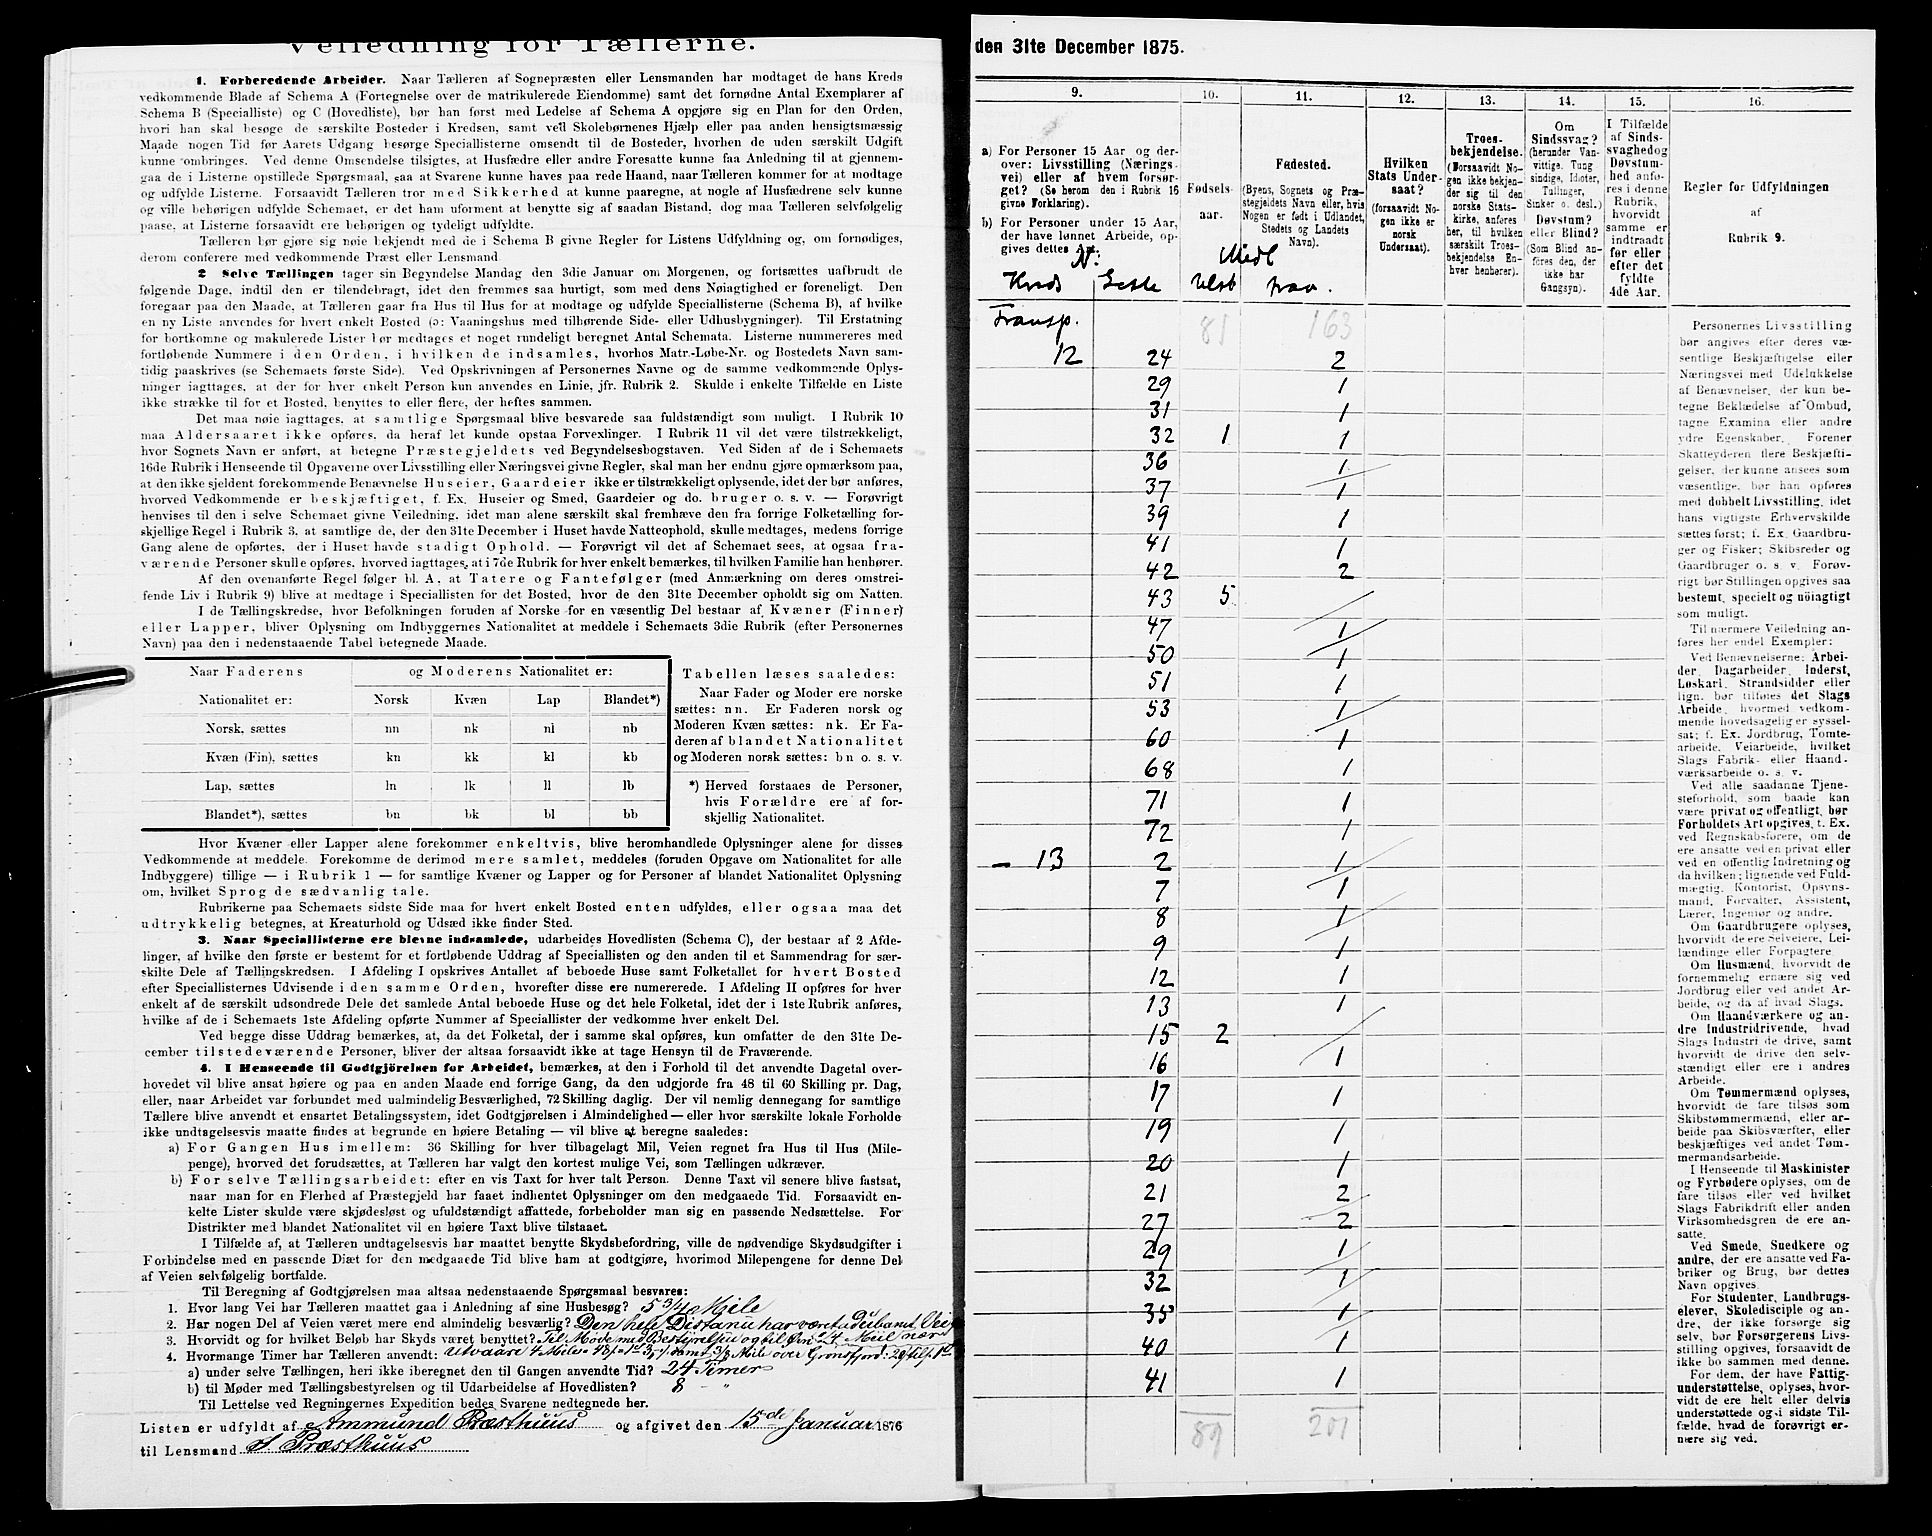 Veiledning for Tællerne.
1. Forberedende Arbeider. Naar Tælleren af Sognepræsten eller Lensmanden har modtaget de hans Kreds
vedkommende Blade af Schema A (Fortegnelse over de matrikulerede Eiendomme) samt det fornødne Antal Exemplarer af
Schema B (Specialliste) og C (Hovedliste), bør han først med Ledelse af Schema A opgjøre sig en Plan for den Orden,
hvori han skal besøge de særskilte Bosteder i Kredsen, samt ved Skolebørnenes Hjælp eller paa anden hensigtsmæssig
Maade nogen Tid før Aarets Udgang besørge Speciallisterne omsendt til de Bosteder, hvorhen de uden særskilt Udgift
kunne ombringes. Ved denne Omsendelse tilsigtes, at Husfædre eller andre Foresatte kunne faa Anledning til at gjennem-
gaa de i Listerne opstillede Spørgsmaal, saa at Svarene kunne haves paa rede Haand, naar Tælleren kommer for at modtage
og udfylde Listerne. Forsaavidt Tælleren tror med Sikkerhed at kunne paaregne, at nogle af Husfædrene selv kunne
og ville behørigen udfylde Schemaet, er det ham uforment at benytte sig af saadan Bistand, dog maa Tælleren selvfølgelig
paase, at Listerne forsaavidt ere behørigen og tydeligt udfyldte.
Tælleren bør gjøre sig nøie bekjendt med de i Schema B givne Regler for Listens Udfyldning og, om fornødiges,
derom conferere med vedkommende Præst eller Lensmand.
2 Selve Tællingen tager sin Begyndelse Mandag den 3die Januar om Morgenen, og fortsættes uafbrudt de
følgende Dage, indtil den er tilendebragt, idet den fremmes saa hurtigt, som med dens Nøiagtighed er foreneligt. Den
foregaar paa den Maade, at Tælleren gaar fra Hus til Hus for at modtage og udfylde Speciallisterne (Schema B), af hvilke
en ny Liste anvendes for hvert enkelt Bosted (ɔ: Vaaningshus med tilhørende Side- eller Udhusbygninger). Til Erstatning
for bortkomne og makulerede Lister bør medtages et noget rundeligt beregnet Antal Schemata. Listerne nummereres med
fortløbende Nummere i den Orden, i hvilken de indsamles, hvorhos Matr.-Løbe-Nr. og Bostedets Navn sam-
tidig paaskrives (se Schemaets første Side). Ved Opskrivningen af Personernes Navne og de samme vedkommende Oplys-
ninger iagttages, at der for hver enkelt Person kun anvendes en Linie, jfr. Rubrik 2. Skulde i enkelte Tilfælde en Liste
ikke strække til for et Bosted, benyttes to eller flere, der heftes sammen.
Det maa nøie iagttages, at samtlige Spørgsmaal blive besvarede saa fuldstændigt som muligt. I Rubrik 10
maa Aldersaaret ikke opføres, da heraf let kunde opstaa Forvexlinger. I Rubrik 11 vil det være tilstrækkeligt,
hvor Sognets Navn er anført, at betegne Præstegjeldets ved Begyndelsesbogstaven. Ved Siden af de i Schemaets
16de Rubrik i Henseende til Opgaverne over Livsstilling eller Næringsvei givne Regler, skal man her endnu gjøre opmærksom paa,
at den ikke sjeldent forekommende Benævnelse Huseier, Gaardeier ikke er tilstrækkeligt oplysende, idet der bør anføres,
hvorved Vedkommende er beskjæftiget, f. Ex. Huseier og Smed, Gaardeier og do. bruger o. s. v. — Forøvrigt
henvises til den i selve Schemaet givne Veiledning, idet man alene særskilt skal fremhæve den fra forrige Folketælling for-
skjellige Regel i Rubrik 3, at samtlige de, der den 31te December i Huset havde Natteophold, skulle medtages, medens forrige
Gang alene de opførtes, der i Huset havde stadigt Ophold. — Forøvrigt vil det af Schemaet sees, at ogsaa fra-
værende Personer skulle opføres, hvorved iagttages, at i 7de Rubrik for hver enkelt bemærkes, til hvilken Familie han henhører.
Af den ovenanførte Regel følger bl. A. at Tatere og Fantefølger (med Anmærkning om deres omstrei-
fende Liv i Rubrik 9) blive at medtage i Speciallisten for det Bosted, hvor de den 31te December opholdt sig om Natten.
I de Tællingskredse, hvor Befolkningen foruden af Norske for en væsentlig Del bestaar af Kvæner (Finner)
eller Lapper, bliver Oplysning om Indbyggernes Nationalitet at meddele i Schemaets 3die Rubrik (efter Personernes
Navn) paa den i nedenstaaende Tabel betegnede Maade.
Naar Faderens og Moderens Nationalitet er:
Nationalitet er: Norsk Kvæn Lap Blandet*)
Norsk, sættes nn nk nl nb
Kvæn (Fin), sættes kn kk kl kb
Lap, sættes ln lk ll lb
Blandet*), sættes bn bk bl bb
Tabellen læses saaledes:
Naar Fader og Moder ere norske
sættes: nn. Er Faderen norsk og
Moderen Kvæn sættes: nk. Er Fa-
deren af blandet Nationalitet
og Moderen norsk sættes: bn o. s. v.
*) Herved forstaaes de Personer,
hvis Forældre ere af for-
skjellig Nationalitet.
Hvor Kvæner eller Lapper alene forekommer enkeltvis, blive heromhandlede Oplysninger alene for disses
Vedkommende at meddele. Forekomme de derimod mere samlet, meddeles (foruden Opgave om Nationalitet for alle
Indbyggere) tillige — i Rubrik 1 — for samtlige Kvæner og Lapper og for Personer af blandet Nationalitet Oplysning
om, hvilket Sprog de sædvanlig tale.
Rubrikerne paa Schemaets sidste Side maa for hvert enkelt Bosted enten udfyldes, eller ogsaa maa det
udtrykkelig betegnes, at Kreaturhold og Udsæd ikke finder Sted.
3. Naar Speciallisterne ere blevne indsamlede, udarbeides Hovedlisten (Schema C), der bestaar af 2 Afde-
linger, af hvilke den første er bestemt for et fortløbende Uddrag af Speciallisten og den anden til et Sammendrag for sær-
skilte Dele af Tællingskredsen. I Afdeling I opskrives Antallet af beboede Huse samt Folketallet for hvert Bosted
efter Speciallisternes Udvisende i den samme Orden, hvorefter disse ere numererede. I Afdeling II opføres for hver
enkelt af de særskilt udsondrede Dele det samlede Antal beboede Huse og det hele Folketal, idet der i 1ste Rubrik anføres,
hvilke af de i Schemaets 1ste Afdeling opførte Nummer af Speciallister der vedkomme hver enkelt Del.
Ved begge disse Uddrag bemærkes, at, da det Folketal, der i samme skal opføres, kun omfatter de den 31te De-
cember tilstedeværende Personer, bliver der altsaa forsaavidt ikke at tage Hensyn til de Fraværende.
4. I Henseende til Godtgjörelsen for Arbeidet, bemærkes, at den i Forhold til det anvendte Dagetal over-
hovedet vil blive ansat høiere og paa en anden Maade end forrige Gang, da den udgjorde fra 48 til 60 Skilling pr. Dag,
eller, naar Arbeidet var forbundet med ualmindelig Besværlighed, 72 Skilling daglig. Der vil nemlig dennegang for samtlige
Tællere blive anvendt et ensartet Betalingssystem, idet Godtgjørelsen i Almindelighed — eller hvor særskilte lokale Forholde
ikke undtagelsesvis maatte findes at begrunde en høiere Betaling — vil blive at beregne saaledes:
a) For Gangen Hus imellem: 36 Skilling for hver tilbagelagt Mil, Veien regnet fra Hus til Hus (Mile-
penge), hvorved det forudsættes, at Tælleren har valgt den kortest mulige Vei, som Tællingen udkræver.
b) For selve Tællingsarbeidet: efter en vis Taxt for hver talt Person. Denne Taxt vil senere blive fastsat,
naar man for en Flerhed af Præstegjeld har faaet indhentet Oplysninger om den medgaaede Tid. Forsaavidt en-
kelte Lister skulde være skjødesløst og ufuldstændigt affattede, forbeholder man sig en passende Nedsættelse. For
Distrikter med blandet Nationalitet vil en høiere Taxt blive tilstaaet.
I Tilfælde af, at Tælleren undtagelsesvis har maattet benytte Skydsbefordring, ville de nødvendige Skydsudgifter i
Forbindelse med en passende Diæt for den medgaaede Tid blive ham at godtgjøre, hvorimod Milepengene for denne Del
af Veien selvfølgelig bortfalde.
Til Beregning af Godtgjørelsen maa altsaa nedenstaaende Spørgsmaal besvares:
1. Hvor lang Vei har Tælleren maattet gaa i Anledning af sine Husbesøg? 5 3/4 Mile
2. Har nogen Del af Veien været mere end almindelig besværlig? Den hele Distance har været
3. Hvorvidt og for hvilket Beløb har Skyds været benyttet? Til Møde med Bestyrelsen og til
4. Hvormange Timer har Tælleren anvendt:
a) under selve Tællingen, heri ikke iberegnet den til Gangen anvendte Tid? 24 Timer
b) til Møder med Tællingsbestyrelsen og til Udarbeidelse af Hovedlisten? 8 – "
Til Lettelse ved Regningernes Expedition bedes Svarene nedtegnede her.
Listen er udfyldt af Ammund Præsthuus og afgivet den 15de Januar 1876
til Lensmand Præsthuus
den 31te December 1875.
9. 10. 11. 12. 13. 14. 15. 16.
a) For Personer 15 Aar og der-
over: Livsstilling (Nærings-
vei) eller af hvem forsør-
get? (Se herom den i Rubrik 16
givne Forklaring).
b) For Personer under 15 Aar,
der have lønnet Arbeide, op-
gives dettes Art.
Fødsels-
aar.
Fødested.
(Byens, Sognets og Præ-
stegjeldets Navn eller, hvis
Nogen er født i Udlandet,
Stedets og Landets
Navn).
Hvilken
Stats Under-
saat?
(forsaavidt No-
gen ikke er
norsk
Undersaat).
Troes-
bekjendelse.
(Forsaavidt No-
gen ikke bekjen-
der sig til den
norske Stats-
kirke, anføres
her, til hvilken
særskilt Troes-
bekjendelse En-
hver henhører).
Om
Sindssvag?
(herunder Van-
vittige, Tung
sindige, Idioter,
Tullinger,
Sinker o. desl.)
Døvstum?
eller Blind?
(Som Blind an-
føres den, der
ikke har
Gangsyn).
I Tilfælde
af Sinds-
svaghed og
Døvstum-
hed anfø-
res i denne
Rubrik,
hvorvidt
samme er
indtraadt
før eller
efter det
fyldte
4de Aar.
Regler for Udfyldningen
af
Rubrik 9.
N:
Kreds Liste Midl
tilst frav.
Transp. 81 163
12 24 2
29 1
31 1
32 1 1
36 1
37 1
39 1
41 1
42 2
43 5
47 1
50 1
51 1
53 1
60 1
68 1
71 1
72 1
– 13 2 1
7 1
8 1
9 1
12 1
13 1
15 2
16 1
17 1
19 1
20 1
21 2
27 2
29 1
32 1
35 1
40 1
41 1
89 201
Personernes Livsstilling
bør angives efter deres væ-
sentlige Beskjæftigelse eller
Næringsvei med Udelukkelse
af Benævnelser, der kun be-
tegne Beklædelse af Ombud,
tagne Examina eller andre
ydre Egenskaber. Forener
Skatteyderen flere Beskjæfti-
gelser, der kunne ansees som
væsentlige, bør han opføres
med dobbelt Livsstilling, idet
hans vigtigste Erhvervskilde
sættes først; f. Ex. Gaardbru-
ger og Fisker; Skibsreder og
Gaardbruger o. s. v. Forøv-
rigt bør Stillingen opgives saa
bestemt, specielt og nöiagtigt
som muligt.
Til nærmere Veiledning an-
føres her endel Exempler:
Ved Benævnelserne: Arbei-
der, Dagarbeider, Inderst,
Løskarl, Strandsidder eller
lign. bør tilføies det Slags
Arbeide, hvormed vedkom-
mende hovedsagelig er syssel-
sat; f. Ex. Jordbrug, Tomte-
arbeide, Veiarbeide, hvilket
Slags Fabrik- eller Haand-
værksarbeide o. s. v.
Ved alle saadanne Tjene-
steforhold, som baade kan
være privat og offentligt, bør
Forholdets Art opgives, f. Ex.
ved Regnskabsførere, om de
ere ansatte ved en privat eller
ved en offentlig Indretning og
da hvilken; lignende ved Fuld-
mægtig, Kontorist, Opsyns-
mand, Forvalter, Assistent,
Lærer, Ingeniør og andre.
Om Gaardbrugere oplyses,
hvorvidt de ere Selveiere, Lei-
lændinge eller Forpagtere.
Om Husmænd, hvorvidt de
fornemmelig ernære sig ved
Jordbrug eller ved andet Ar-
beide, og da af hvad Slags.
Om Haandværkere og an-
dre Industridrivende, hvad
Slags Industri de drive, samt
hvorvidt de drive den selv-
stændigt eller ere i andres
Arbeide.
Om Tømmermænd oplyses,
hvorvidt de fare tilsøs som
Skibstømmermænd, eller ar-
beide paa Skibsværfter, eller
beskjæftiges ved andet Tøm-
mermandsarbeide.
I Henseende til Maskinister
og Fyrbødere oplyses, om de
fare tilsøs eller ved hvilket
Slags Fabrikdrift eller anden
Virksomhedsgren de ere an-
satte.
Ved Smede, Snedkere og
andre, der ere ansatte ved Fa-
briker og Brug, bør dettes
Navn opgives.
For Studenter, Landbrugs-
elever, Skoledisciple og an-
dre, der ikke forsørge sig
selv, bør Forsørgerens Livs-
stilling opgives, forsaavidt de
ikke bo sammen med denne.
For dem, der have Fattig-
understøttelse, oplyses, hvor-
vidt de ere helt eller delvis
understøttede og i sidste Til-
fælde, hvad de forøvrigt er-
nære sig ved.